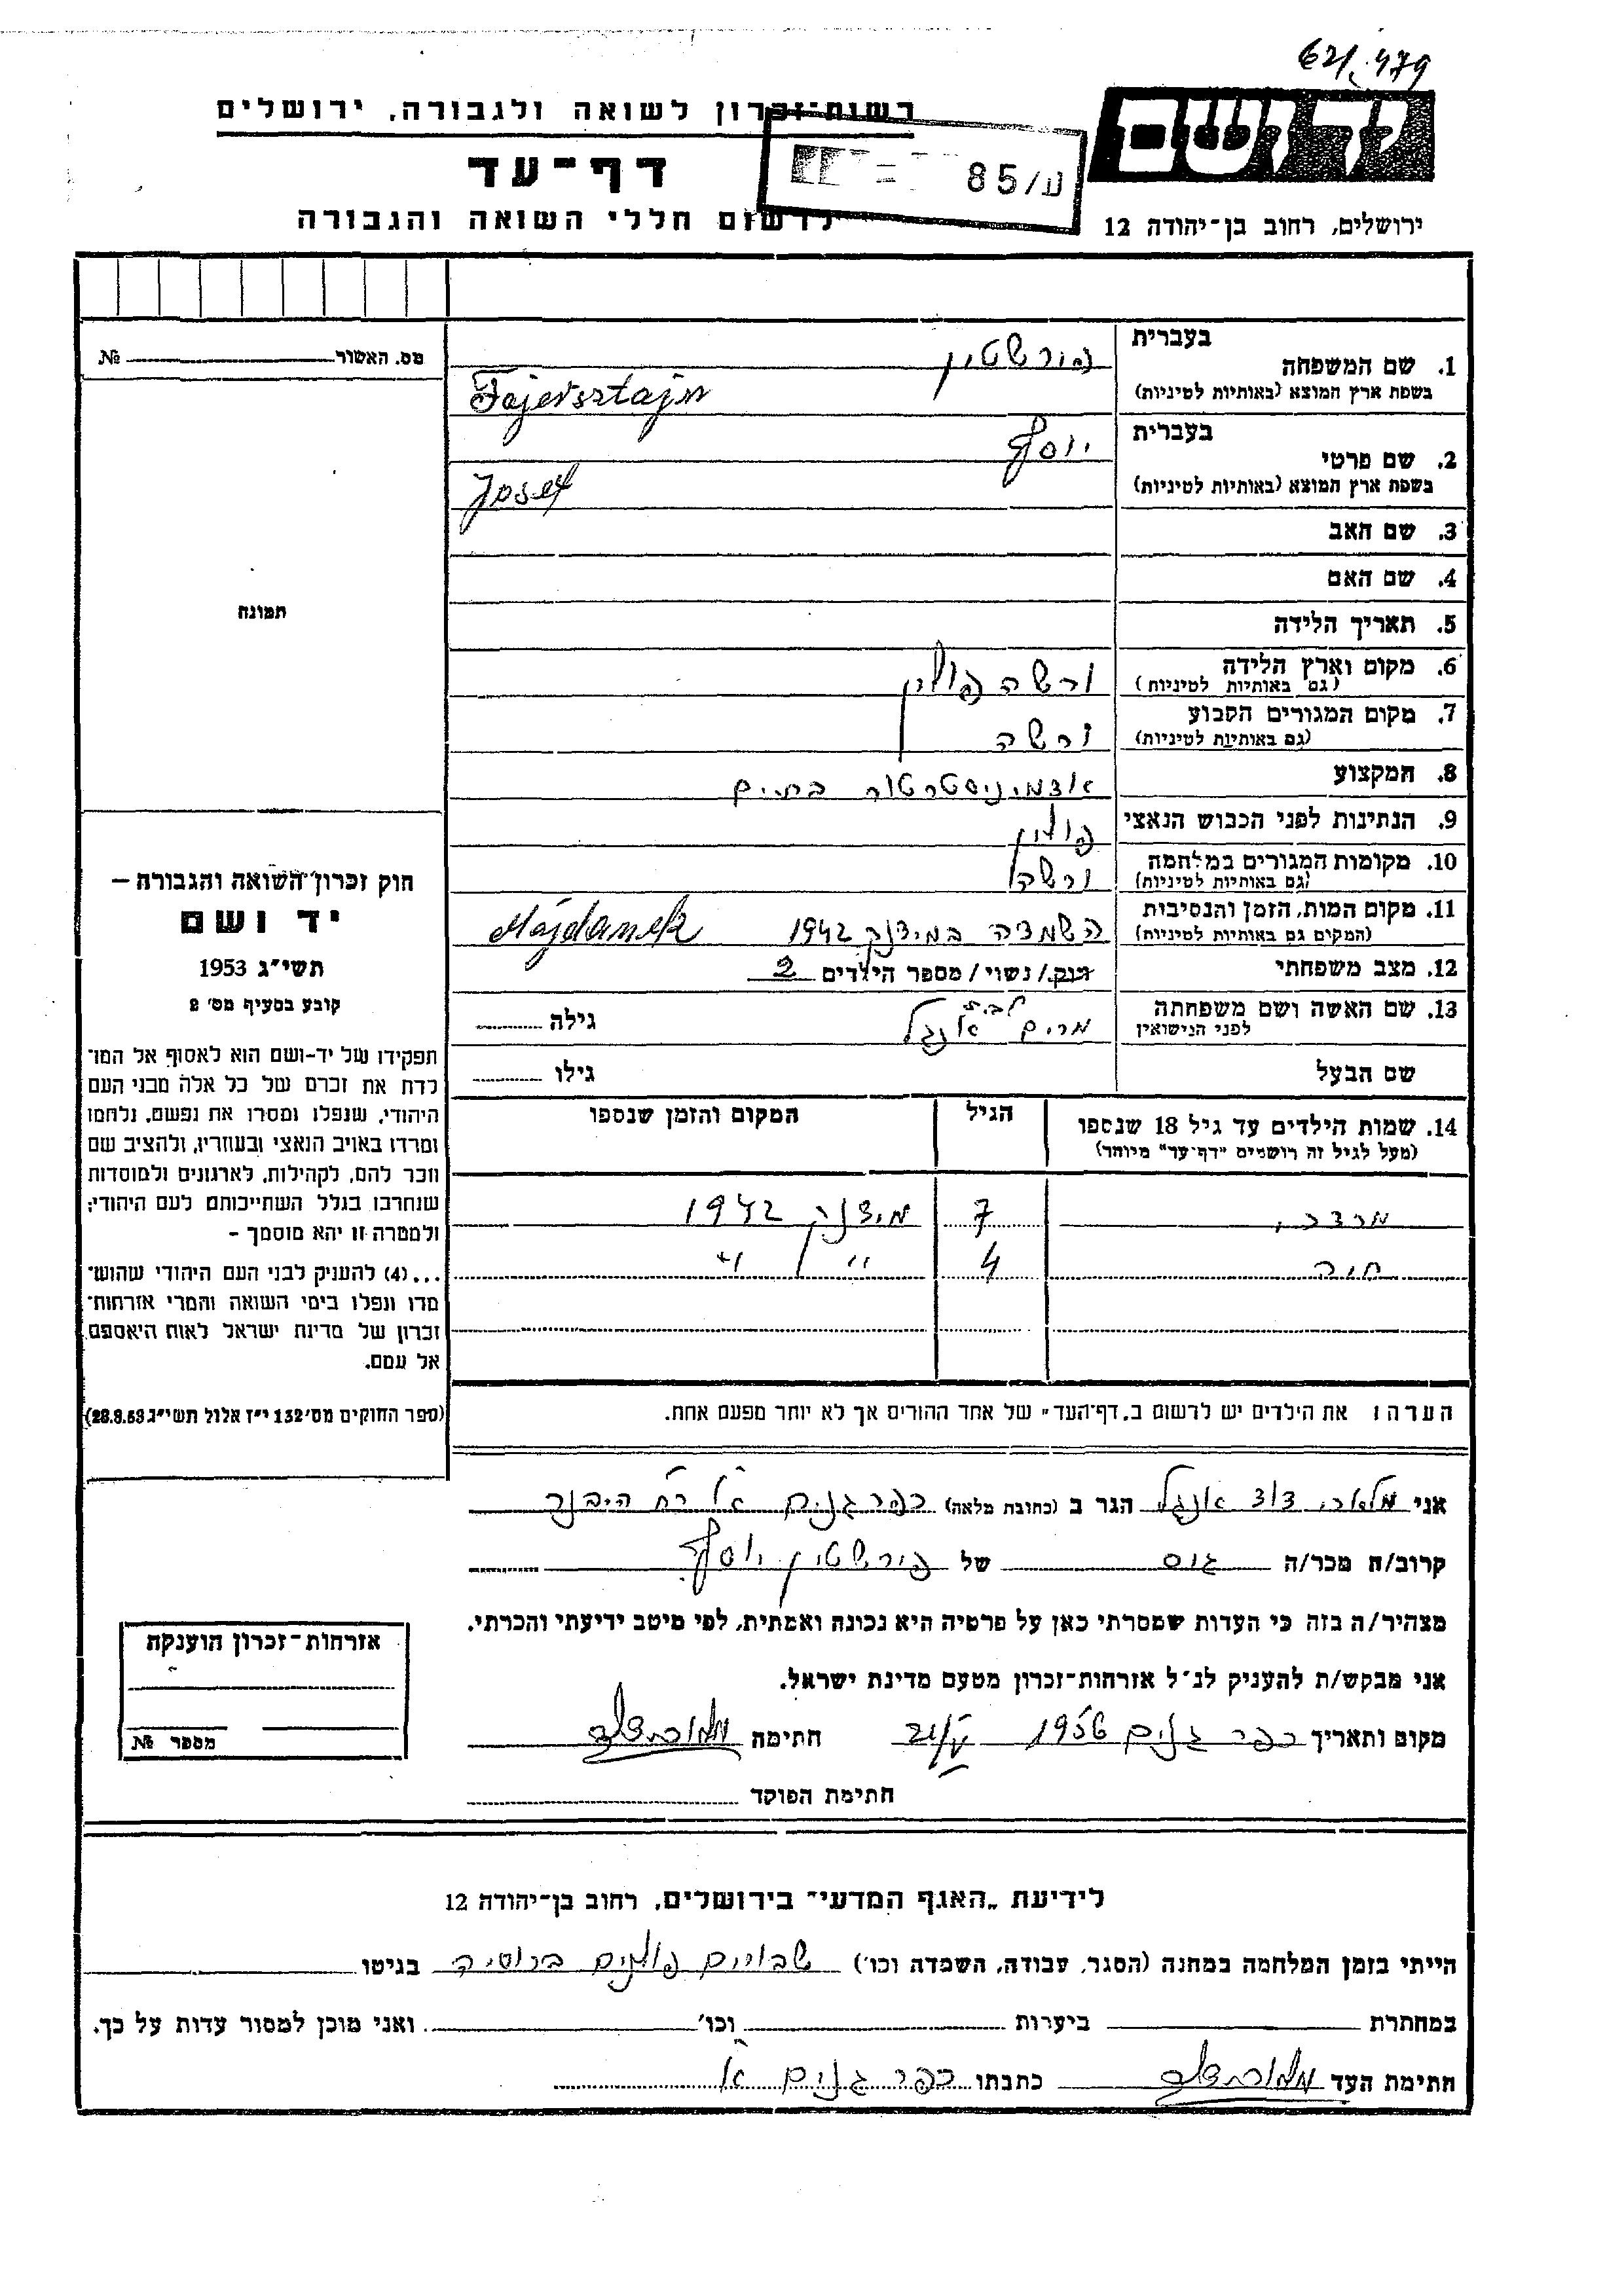 62/479
רשות־זכרון לשואה ולגבורה, ירושלים
ידושם
דף־עד
ע/85
לרשום חללי השואה והגבורה
ירושלים, רחוב בן־יהודה 12
מס. האשור №
בעברית
1. שם המשפחה
פירשטין
(בשפת ארץ המוצא (באותיות לטיניות
Fajersztajn
בעברית
2. שם פרטי
יוסף
(בשפת ארץ המוצא (באותיות לטיניות
Josef
3. שם האב
4. שם האם
תמונה
5. תאריך הלידה
6. מקום וארץ הלידה ורשה פולין
(גם באותיות לטיניות)
7. מקום המגורים הקבוע ורשה
(גם באותיות לטיניות)
8. המקצוע אדמיניסטרטור בתים
9. הנתינות לפני הכבוש הנאצי פולין
10. מקומות המגורים במלחמה ורשה
(גם באותיות לטיניות)
11. מקום המות, הזמן והנסיבות השמדה במידנק 1942 Majdanek
(המקום גם באותיות לטיניות)
12. מצב משפחתי רווק/נשוי/מספר הילדים 2
13. שם האשה ושם משפחתה לפני הנישואין מרים לבית אנגל גילה
שם הבעל גילו
14. שמות הילדים עד גיל 18 שנספו הגיל המקום והזמן שנספו
(מעל לגיל זה רושמים "דף־עד" מיוחד)
מרדכי 7 מידנק 1942
חיה 4 " "
חוק זכרון השואה והגבורה –
יד ושם
תשי"ג 1953
קובע בסעיף מס׳ 2
תפקידו של יד-ושם הוא לאסוף אל המו־
לדת את זכרם של כל אלה מבני העם
היהודי, שנפלו ומסרו את נפשם, נלחמו
ומרדו באויב הנאצי ובעוזריו, ולהציב שם
וזכר להם, לקהילות, לארגונים ולמוסדות
שנחרבו בגלל השתייכותם לעם היהודי;
ולמטרה זו יהא מוסמך –
...(4) להעניק לבני העם היהודי שהוש־
מדו ונפלו בימי השואה והמרי אזרחות־
זכרון של מדינת ישראל לאות היאספם
אל עמם.
(ספר החוקים מס׳ 132 י"ז אלול תשי"ג 28.8.53)
הערה: את הילדים יש לרשום ב„דף־העד" של אחד ההורים אך לא יותר מפעם אחת.
אני דוד אנגל הגר ב (כתובת מלאה) כפר גנים א׳
קרוב/ה מכר/ה גיס של פירשטין יוסף
מצהיר/ה בזה כי העדות שמסרתי כאן על פרטיה היא נכונה ואמתית, לפי מיטב ידיעתי והכרתי.
אני מבקש/ת להעניק לנ״ל אזרחות־זכרון מטעם מדינת ישראל.
מקום ותאריך כפר גנים 1956 חתימה
חתימת הפוקד
אזרחות־זכרון הוענקה
מספר №
לידיעת „האגף המדעי" בירושלים, רחוב בן־יהודה 12
הייתי בזמן המלחמה במחנה (הסגר, עבודה, השמדה וכו׳) שבויים פולנים ברוסיה בגיטו
במחתרת ביערות וכו׳ ואני מוכן למסור עדות על כך.
חתימת העד כתבתו כפר גנים א׳